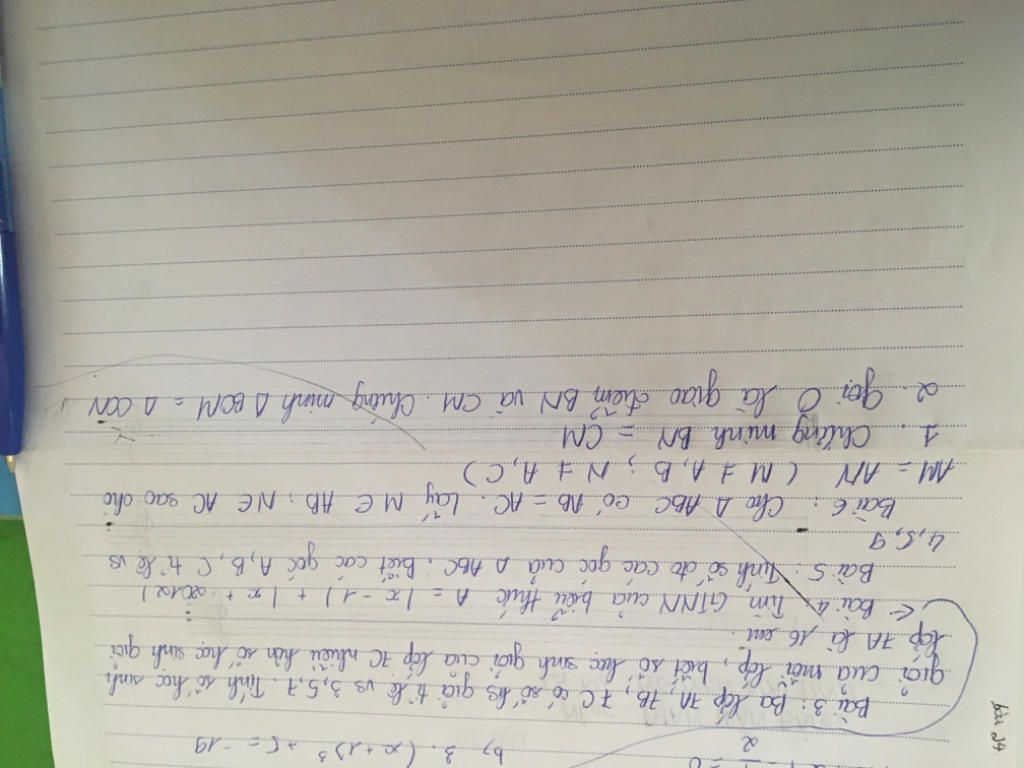 b) 3. (x+1)³ + 5 = -19
Bài 3: Ba lớp 7A, 7B, 7C có số hs giỏi tỉ lệ vs 3,5,7. Tính số học sinh
giỏi của mỗi lớp, biết số học sinh giỏi của lớp 7C nhiều hơn số học sinh giỏi
lớp 7A là 16 em.
Bài 4: Tìm GTNN của biểu thức A = |x - 1| + |x + 2012|
Bài 5: Tính số đo các góc của Δ ABC. Biết các góc A, B, C tỉ lệ vs
4,5,9
Bài 6: Cho Δ ABC có AB = AC. Lấy M ∈ AB; N ∈ AC sao cho
AM = AN ( M ≠ A, B ; N ≠ A, C )
1. Chứng minh BN = CM
2. Gọi O là giao điểm BN và CM. Chứng minh Δ BOM = Δ CON
bài 24